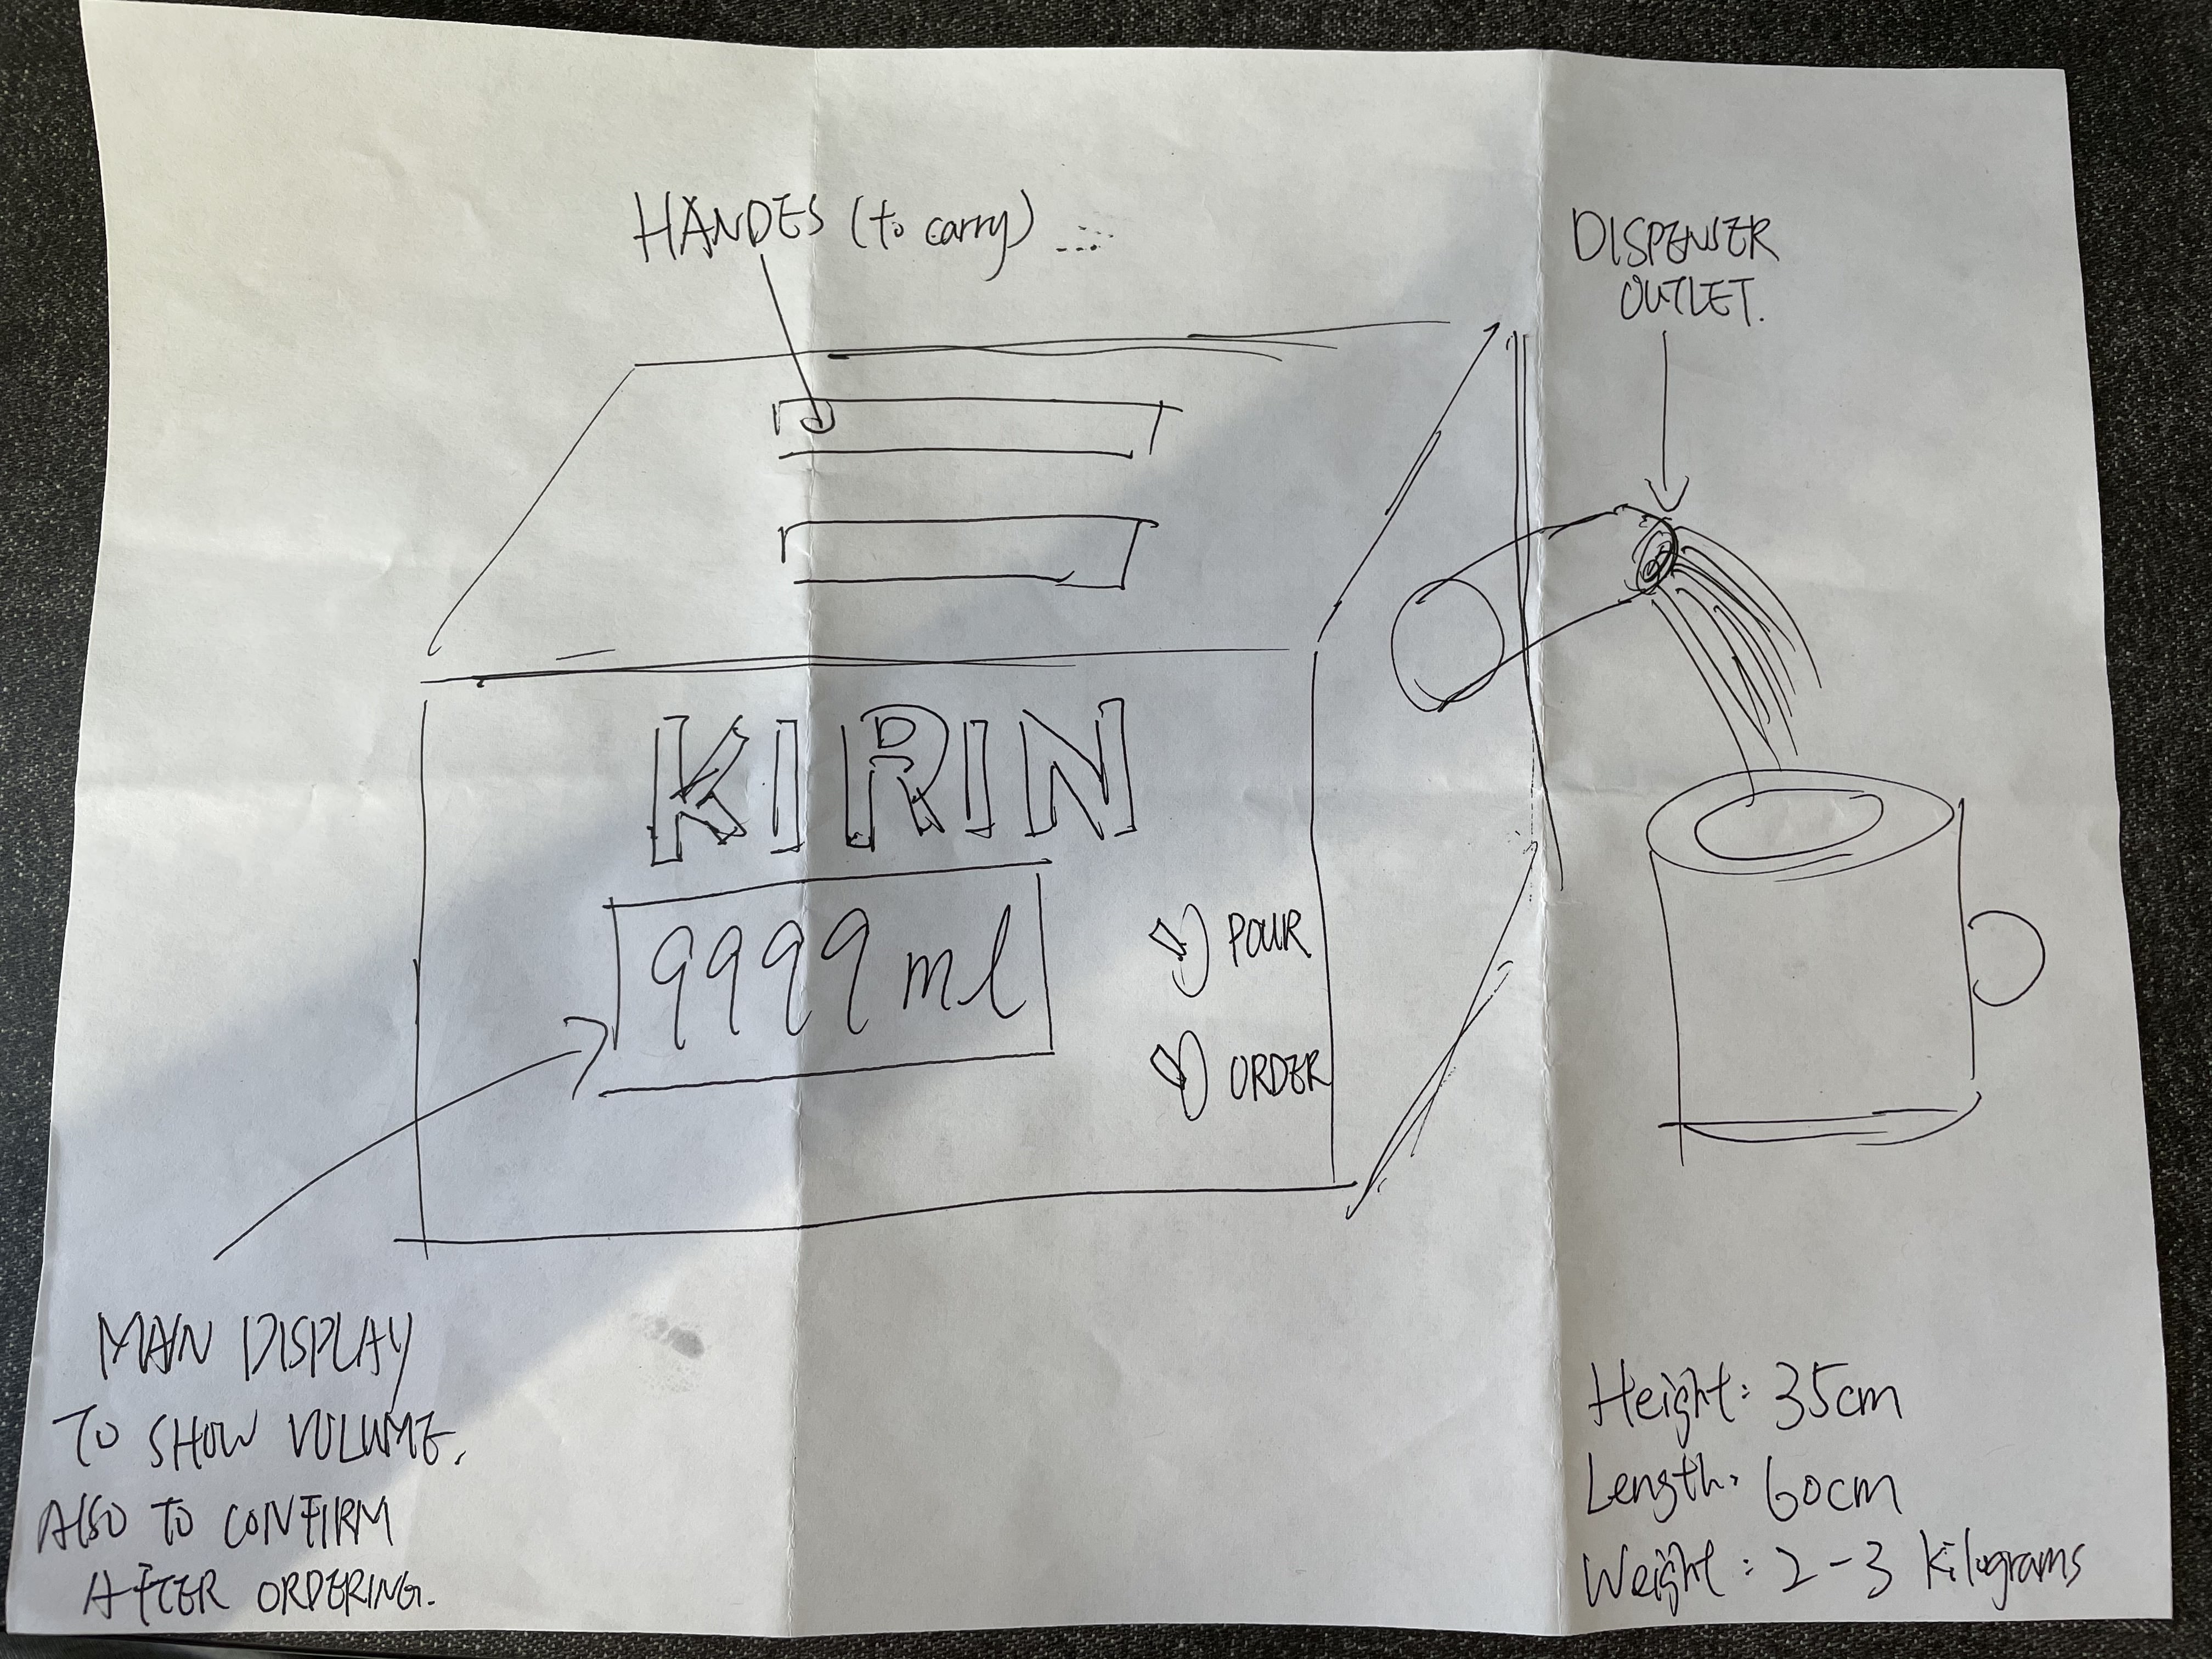 HANDES (to carry)
DISPENSER
OUTLET.
KIRIN
9999 ml
POUR
ORDER
MAIN DISPLAY
TO SHOW VOLUME.
ALSO TO CONFIRM
AFTER ORDERING.
Height: 35cm
Length: 60cm
Weight: 2-3 kilograms